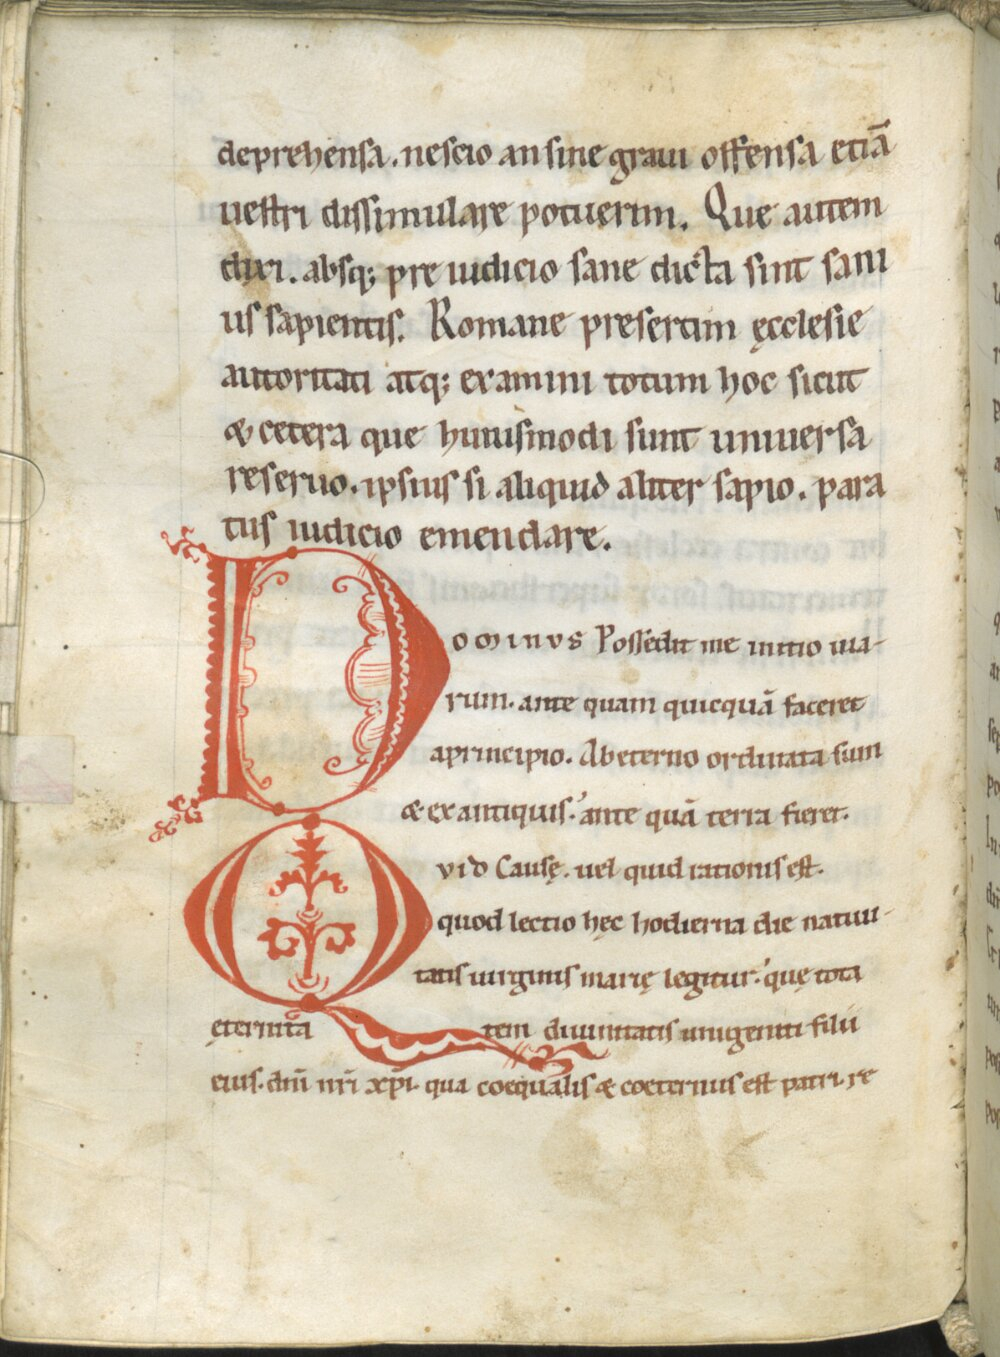 deprehensa. nescio an sine graui offensa etiā
uestri dissimulare potuerim. Que autem
dixi. absq; pre iudicio sane dicta sint sani
us sapientis. Romane presertim ęcclesie
autoritati atq; examini totum hoc sicut
& cetera que huiusmodi sunt uniuersa
reseruo. ipsius si aliquid aliter sapio. para
tus iudicio emendare.
Dominus Possedit me initio uia-
rum. ante quam quicquā faceret
a principio. Ab eterno ordinata sum
& ex antiquis. ante quā terra fieret.
Quid Causę. uel quid rationis est.
quod lectio hęc hodierna die natiui-
tatis uirginis marię legitur. quę tota
ęternita tem diuinitatis unigeniti filii
eius. dn̄i nr̄i xp̄i. qua coequalis & coeternus est patri. re